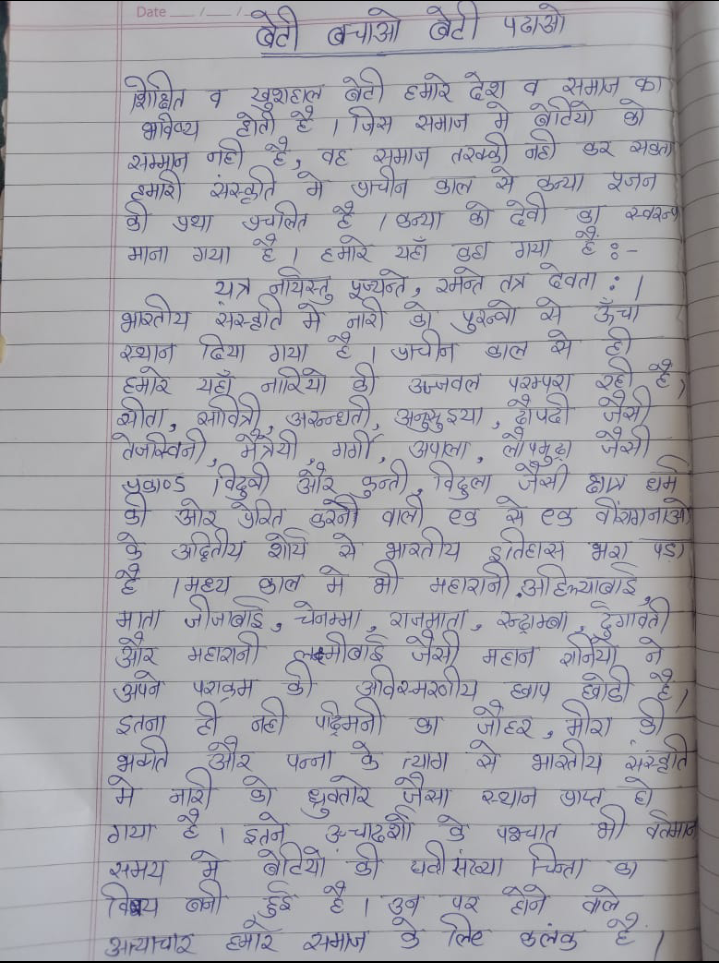 Date __/__/__
बेटी बचाओ बेटी पढाओ
शिक्षित व खुशहाल बेटी हमारे देश व समाज का
भविष्य होती है । जिस समाज मे बेटियो को
सम्मान नही है, वह समाज तरक्की नही कर सकता
हमारी संस्कृति मे प्राचीन काल से कन्या पूजन
की प्रथा प्रचलित है । कन्या को देवी का स्वरूप
माना गया है । हमारे यहाँ कहा गया है :-
यत्र नार्यस्तु पूज्यन्ते, रमन्ते तत्र देवता : ।
भारतीय संस्कृति मे नारी को पुरुषो से ऊँचा
स्थान दिया गया है । प्राचीन काल से ही
हमारे यहाँ नारियो की उज्जवल परम्परा रही है,
सीता, सावित्री, अरुन्धती, अनुसुइया, द्रौपदी जैसी
तेजस्विनी, मैत्रेयी, गर्गी, अपाला, लोपमुद्रा जैसी
प्रकाण्ड विदुषी और कुन्ती, विदुला जैसी क्षात्र धर्म
की ओर प्रेरित करनी वाली एक से एक वीरांगनाओ
के अद्वितीय शौर्य से भारतीय इतिहास भरा पड़ा
है । मध्य काल मे भी महारानी अहिल्याबाई,
माता जीजाबाई, चेनम्मा, राजमाता, रुद्राम्बा, दुर्गावती
और महारानी लक्ष्मीबाई जैसी महान रानियो ने
अपने पराक्रम की अविस्मरणीय छाप छोडी है,
इतना ही नही पद्मिनी का जौहर, मीरा की
भक्ति और पन्ना के त्याग से भारतीय संस्कृति
मे नारी को ध्रुवतारे जैसा स्थान प्राप्त हो
गया है । इतने उच्चादर्शो के पश्चात भी वर्तमान
समय मे बेटियो की घटी संख्या चिन्ता का
विषय बनी हुई है । उन पर होने वाले
अत्याचार हमारे समाज के लिए कलंक है ।